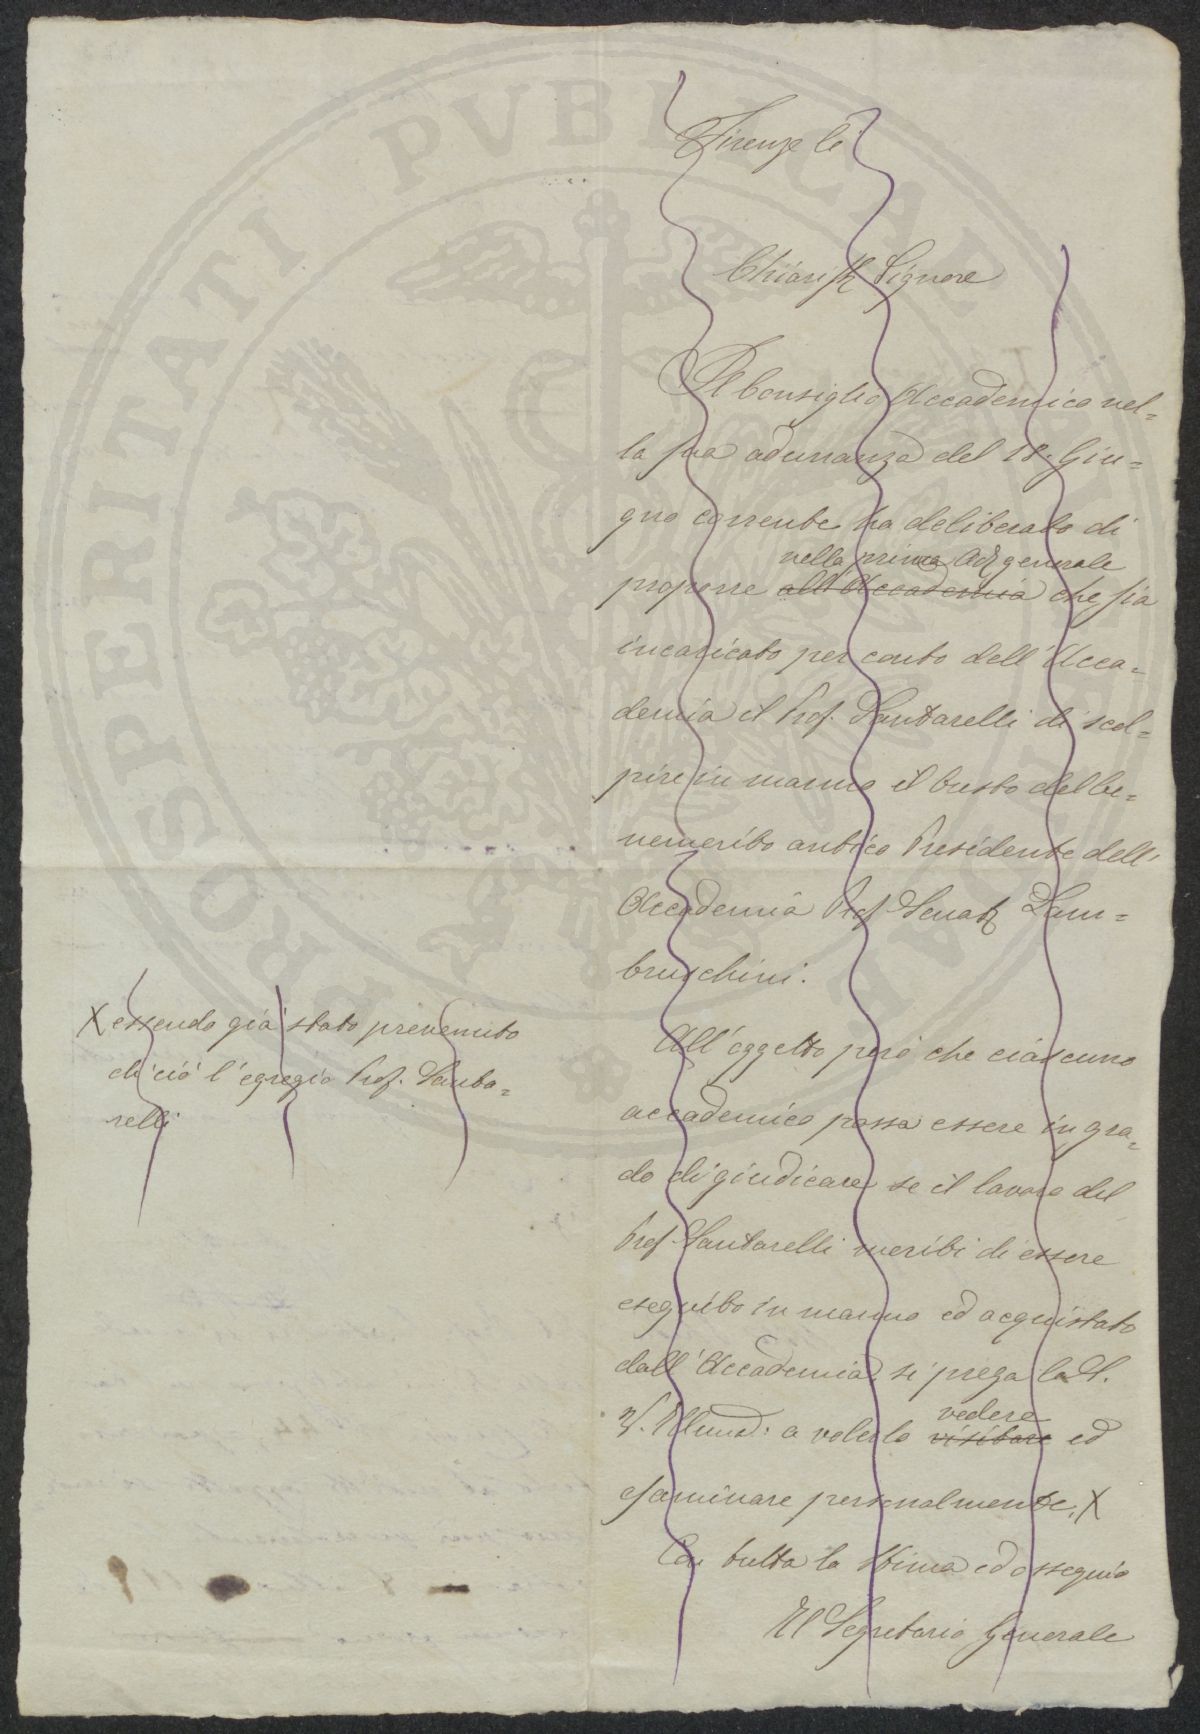 PROSPERITATI PVBLICAE AVGENDAE
Firenze li
Chiariss. Signore
Il Consiglio Accademico nel=
la sua adunanza del 18. Giu=
gno corrente ha deliberato di
nella prima Adza generale
proporre all'Accademia che sia
incaricato per conto dell'Acca=
demia il Prof. Santarelli di scol=
pire in marmo il busto del be=
nemerito antico Presidente dell'
Accademia Prof. Senat. Lam=
bruschini.
All'oggetto però che ciascuno
accademico possa essere in gra=
do di giudicare se il lavoro del
Prof. Santarelli meriti di essere
eseguito in marmo ed acquistato
dall'Accademia, si prega la S.
V. Illma: a volerlo
vedere
visitare ed
esaminare personalmente. X
Con tutta la stima ed ossequio
Il Segretario Generale
X essendo già stato prevenuto
di ciò l'egregio Prof. Santa=
relli